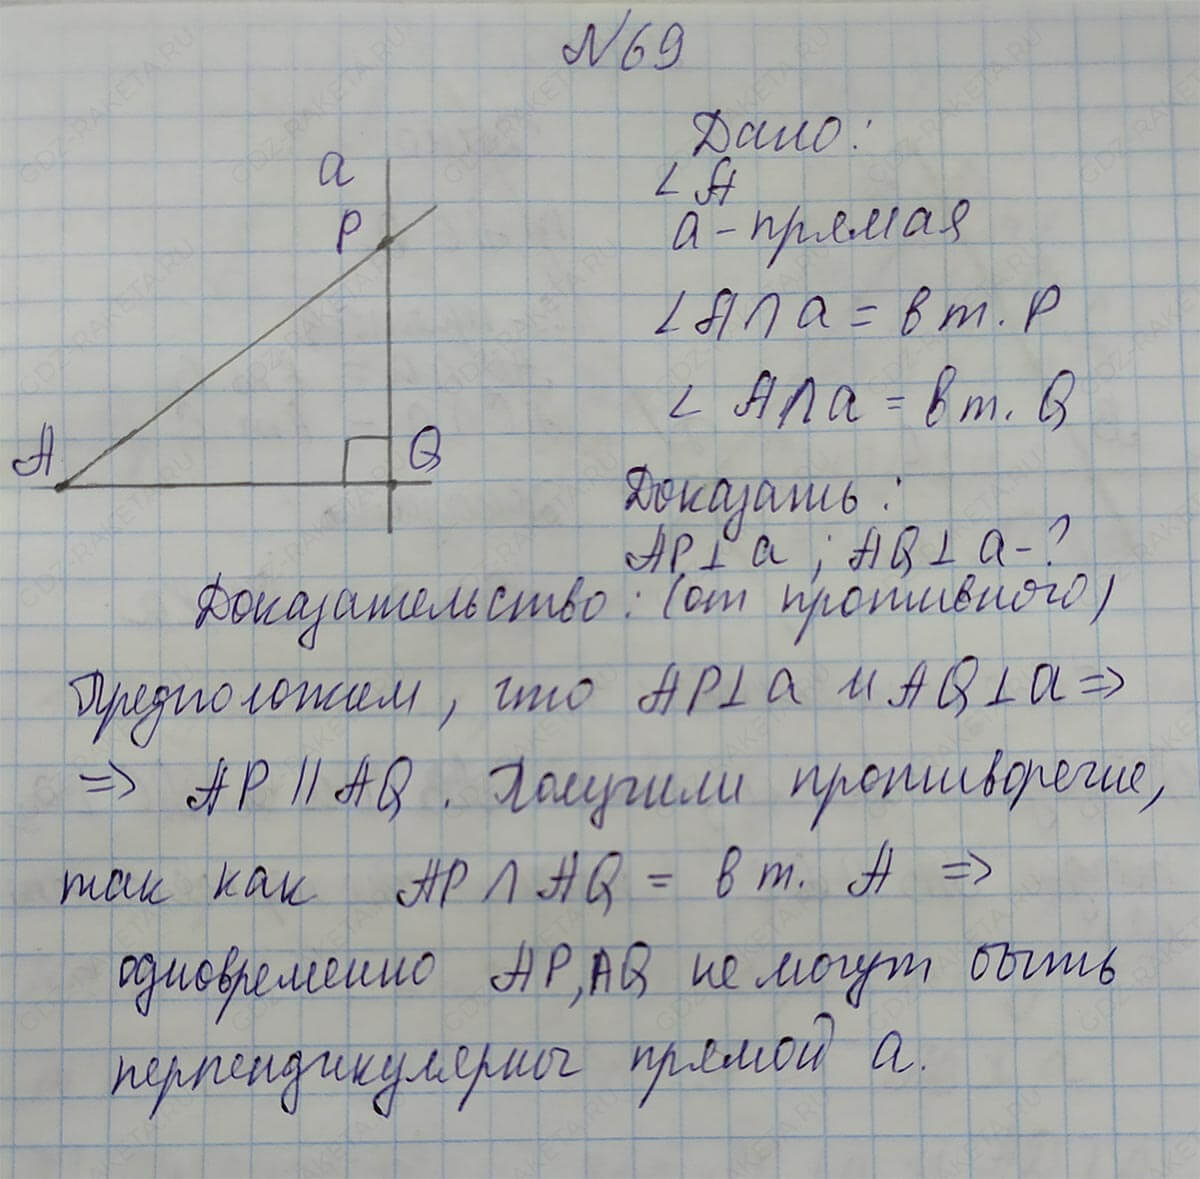 №69
Дано:
∠A
a - прямая
∠A∩a = в т. P
∠A∩a = в т. Q
Доказать:
AP⊥a ; AQ⊥a -?
a
P
A
Q
Доказательство: (от противного)
Предположим, что AP⊥a и AQ⊥a =>
=> AP || AQ. Получили противоречие,
так как AP ∩ AQ = в т. A =>
одновременно AP, AQ не могут быть
перпендикулярны прямой a.